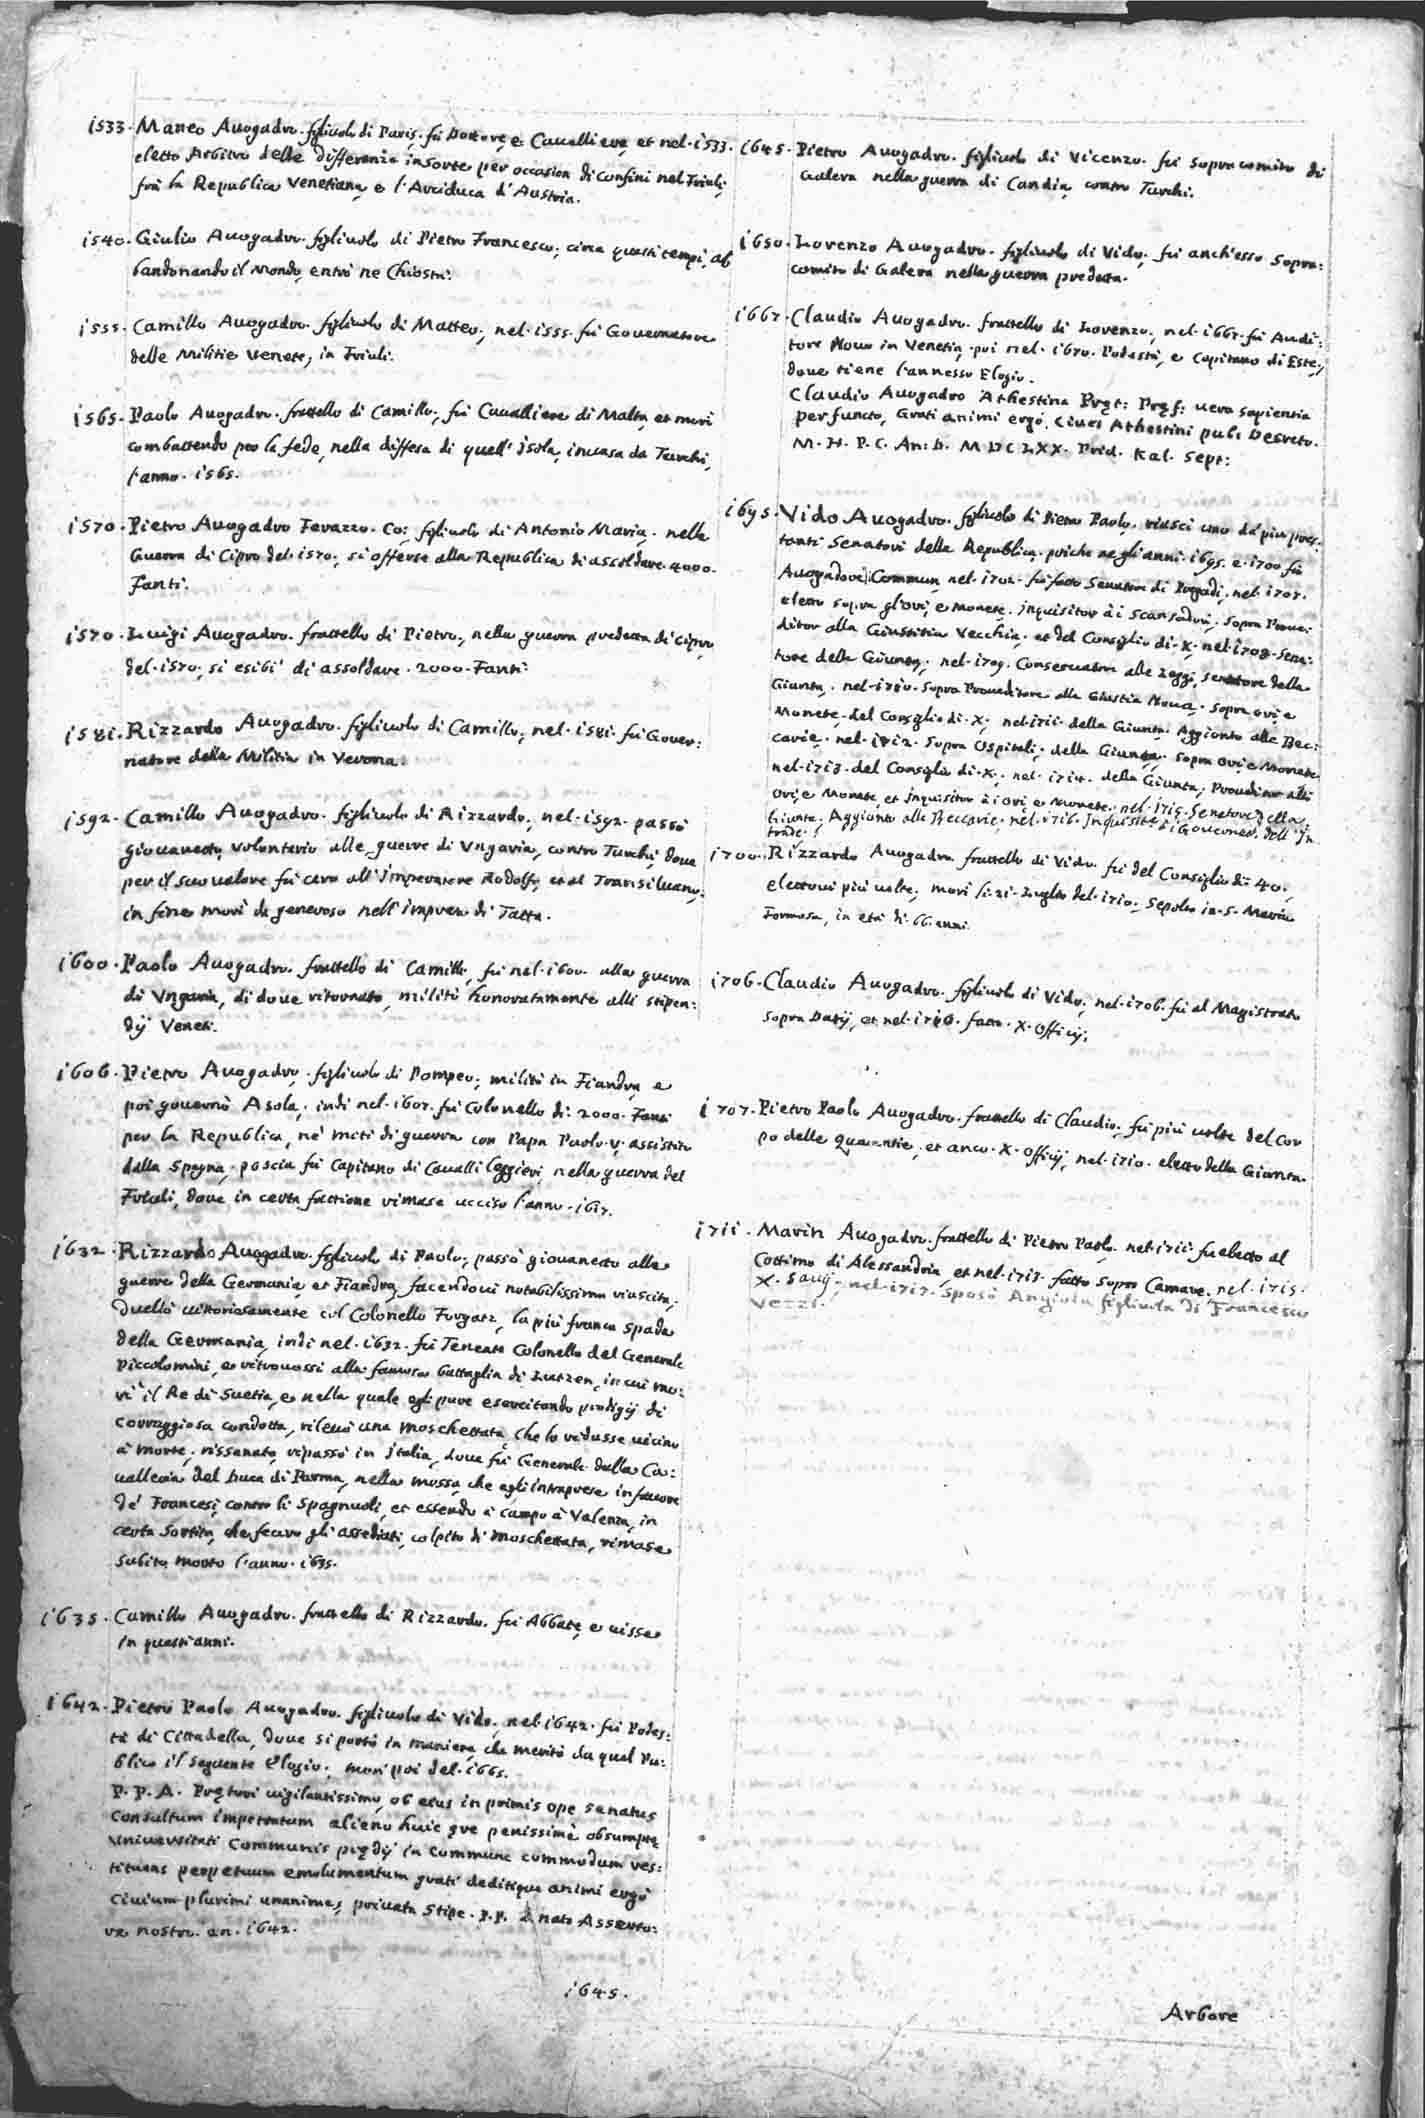 1533. Matteo Auogadro. figliuolo di Paris. fu Dottore, e Caualliere, et nel. 1533.
eletto Arbitro delle differenze insorte per occasion di confini nel Friuli,
frà la Republica Venetiana, e l'Arciduca d'Austria.
1540. Giulio Auogadro. figliuolo di Pietro Francesco, circa questi tempi, ab
bandonando il Mondo, entrò ne Chiostri.
1555. Camillo Auogadro. figliuolo di Matteo, nel. 1555. fu Gouernatore
delle Militie Venete, in Friuli.
1565. Paolo Auogadro. frattello di Camillo, fu Caualliere di Malta, et morì
combattendo per la fede, nella diffesa di quell'Isola, inuasa da Turchi,
l'anno. 1565.
1570. Pietro Auogadro Ferazzo. Co: figliuolo di Antonio Maria. nella
Guerra di Cipro del. 1570. si offerse alla Republica di assoldare. 4000.
Fanti.
1570. Luigi Auogadro. frattello di Pietro, nella guerra predetta di Cipro,
del. 1570. si esibì di assoldare. 2000. Fanti.
1581. Rizzardo Auogadro. figliuolo di Camillo, nel. 1581. fu Gouer:
natore della Militia in Verona.
1592. Camillo Auogadro. figliuolo di Rizzardo, nel. 1592. passò
giouanetto, volontario alle guerre di Vngaria, contro Turchi, doue
per il suo ualore fu caro all'Imperatore Rodolfo, et al Transiluano,
in fine morì da generoso nell'impresa di Tatta.
1600. Paolo Auogadro. frattello di Camillo, fu nel. 1600. alla guerra
di Vngaria, di doue ritornato, militò honoratamente alli stipen:
dij Veneti.
1606. Pietro Auogadro, figliuolo di Pompeo, militò in Fiandra, e
poi gouernò Asola, indi nel. 1607. fu Colonello di. 2000. Fanti
per la Republica, ne' moti di guerra con Papa Paolo. V. assistito
dalla Spagna, poscia fu Capitano di Caualli leggieri, nella guerra del
Friuli, doue in certa fattione rimase ucciso l'anno. 1617.
1632. Rizzardo Auogadro. figliuolo di Paolo, passò giouanetto alle
guerre della Germania, et Fiandra, facendoui notabilissima riuscita,
duellò uittoriosamente col Colonello Forgatz, la più franca spada
della Germania, indi nel. 1632. fu Tenente Colonello del Generale
Piccolomini, e ritrouossi alla famosa battaglia di Lutzen, in cui mo:
rì il Re di Suetia, e nella quale egli pure esercitando prodigij di
corraggiosa condotta, rileuò una moschettata, che lo ridusse uicino
à morte, rissanato, ripassò in Italia, doue fu Generale della Ca:
ualleria del Duca di Parma, nella mossa, che egli intraprese in fauore
de' Francesi, contro li Spagnuoli, et essendo à campo à Valenza, in
certa sortita, che fecero gli assediati, colpito di moschettata, rimase
subito morto l'anno. 1635.
1635. Camillo Auogadro. frattello di Rizzardo. fu Abbate, e uisse
in questi anni.
1642. Pietro Paolo Auogadro. figliuolo di Vido, nel. 1642. fu Podes:
tà di Cittadella, doue si portò in maniera, che meritò da quel Pu:
blico il seguente Elogio, morì poi del. 1665.
P. P. A. Prętori uigilantissimo, ob eius in primis ope senatus
Consultum impetratum alieno huic que penissimè obsumptę
Vniuersitati Communis prędij in commune commodum res:
tituens perpetuum emolumentum grati deditique animi ergò
Ciuium plurimi unanimes, priuata stipe. P. P. à nato Asserto:
re nostro. an. 1642.
1645.
1645. Pietro Auogadro. figliuolo di Vicenzo. fu sopracomito di
Galera nella guerra di Candia, contro Turchi.
1650. Lorenzo Auogadro. figliuolo di Vido, fu anch'esso Sopra:
comito di Galera nella guerra predetta.
1667. Claudio Auogadro. frattello di Lorenzo, nel. 1667. fu Audi:
tore Nouo in Venetia, poi nel. 1670. Podestà, e Capitano di Este,
doue tiene l'annesso Elogio.
Claudio Auogadro Athestina Pręt: Pręf: uera sapientia
perfuncto, Grati animi ergò, Ciues Athestini publ: Decreto.
M. H. P. C. An. D. MDCLXX. Prid. Kal. Sept:
1695. Vido Auogadro. figliuolo di Pietro Paolo, riuscì uno da più pres:
tanti Senatori della Republica, poiche negli anni. 1695. e. 1700. fu
Auogador di Commun, nel. 1702. fu fatto Senator di Pregadi, nel. 1707.
eletto sopra gl'ori, e Monete. Inquisitor ài Scansadori, sopra Proue:
ditor alla Giustitia Vecchia, et del Consiglio di. X. nel. 1708. Sena:
tore della Giunta, nel. 1709. Conseruator alle Leggi, senatore della
Giunta, nel. 1710. sopra Proueditore alla Giustitia Noua, sopra ori, e
Monete, del Consiglio di. X. nel. 1711. della Giunta. Aggionto alle Bec:
carie, nel. 1712. sopra Ospitali, della Giunta, sopra Ori, e Monete,
nel. 1713. del Consiglio di. X. nel. 1714. della Giunta, Proueditor alli
Ori, e Monete, et Inquisitor ài Ori, e Monete. nel. 1715. Senatore della
Giunta. Aggionto alle Beccarie. nel. 1716. Inquisitor ài Gouernad. dell'In
trade.
1700. Rizzardo Auogadro. frattello di Vido. fu del Consiglio di. 40.
elettoui più uolte, morì li. 21. Luglio del. 1710. Sepolto in. S. Maria
Formosa, in età di. 66. anni.
1706. Claudio Auogadro. figliuolo di Vido, nel. 1706. fu al Magistrato
sopra Datij, et nel. 1710. fatto. X. Officij.
1707. Pietro Paolo Auogadro. frattello di Claudio, fu più uolte del Cor
po delle Quarantie, et anco. X. Officij, nel. 1710. eletto della Giunta.
1711. Marin Auogadro. frattello di Pietro Paolo, nel. 1711. fu eletto al
Cottimo di Alessandria, et nel. 1713. fatto sopra Camere. nel. 1715.
X. Sauij. nel. 1717. sposò Angiola figliuola di Francesco
Vezzi.
Arbore